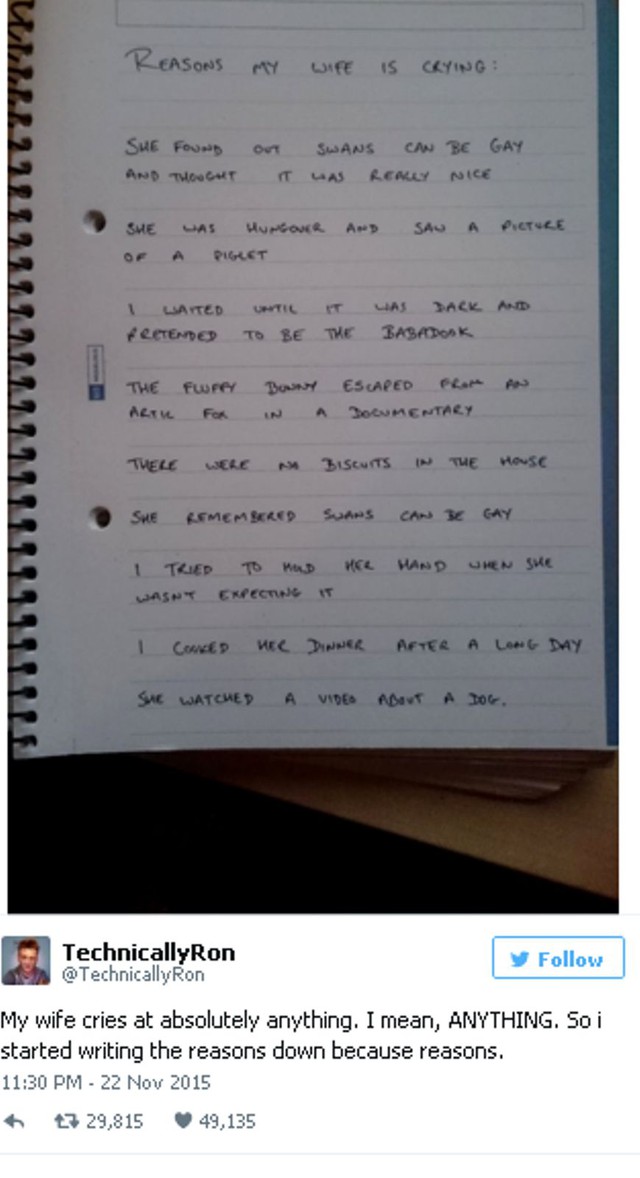 REASONS MY WIFE IS CRYING:
SHE FOUND OUT SWANS CAN BE GAY
AND THOUGHT IT WAS REALLY NICE
SHE WAS HUNGOVER AND SAW A PICTURE
OF A PIGLET
I WAITED UNTIL IT WAS DARK AND
PRETENDED TO BE THE BABADOAK
THE FLUFFY BUNNY ESCAPED FROM AN
ARTIC FOX IN A DOCUMENTARY
THERE WERE NO BISCUITS IN THE HOUSE
SHE REMEMBERED SWANS CAN BE GAY
I TRIED TO HOLD HER HAND WHEN SHE
WASNT EXPECTING IT
I COOKED HER DINNER AFTER A LONG DAY
SHE WATCHED A VIDEO ABOUT A DOG.
TechnicallyRon
@TechnicallyRon
Follow
My wife cries at absolutely anything. I mean, ANYTHING. So i
started writing the reasons down because reasons.
11:30 PM - 22 Nov 2015
29,815 49,135